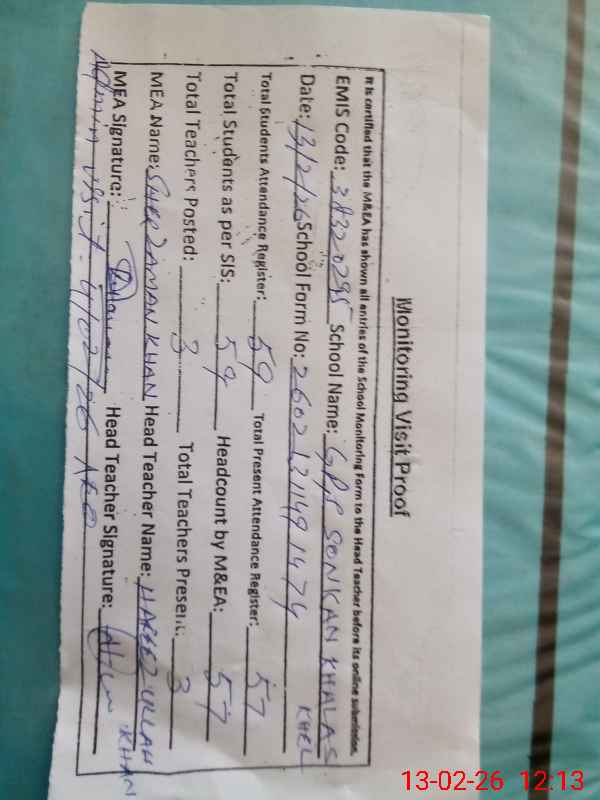 Monitoring Visit Proof
It is certified that the M&EA has shown all entries of the School Monitoring Form to the Head Teacher before its online submission.
EMIS Code: 38320295 School Name: GPS SONKAN KHALAS KHEL
Date: 13/2/26 School Form No: 2602131149 1474
Total Students Attendance Register: 59 Total Present Attendance Register: 57
Total Students as per SIS: 59 Headcount by M&EA: 57
Total Teachers Posted: 3 Total Teachers Present: 3
MEA Name: SHER ZAMAN KHAN Head Teacher Name: HAFEEZ ULLAH KHAN
MEA Signature: Head Teacher Signature:
Admin visit. 4/02/26 AEO
13-02-26 12:13